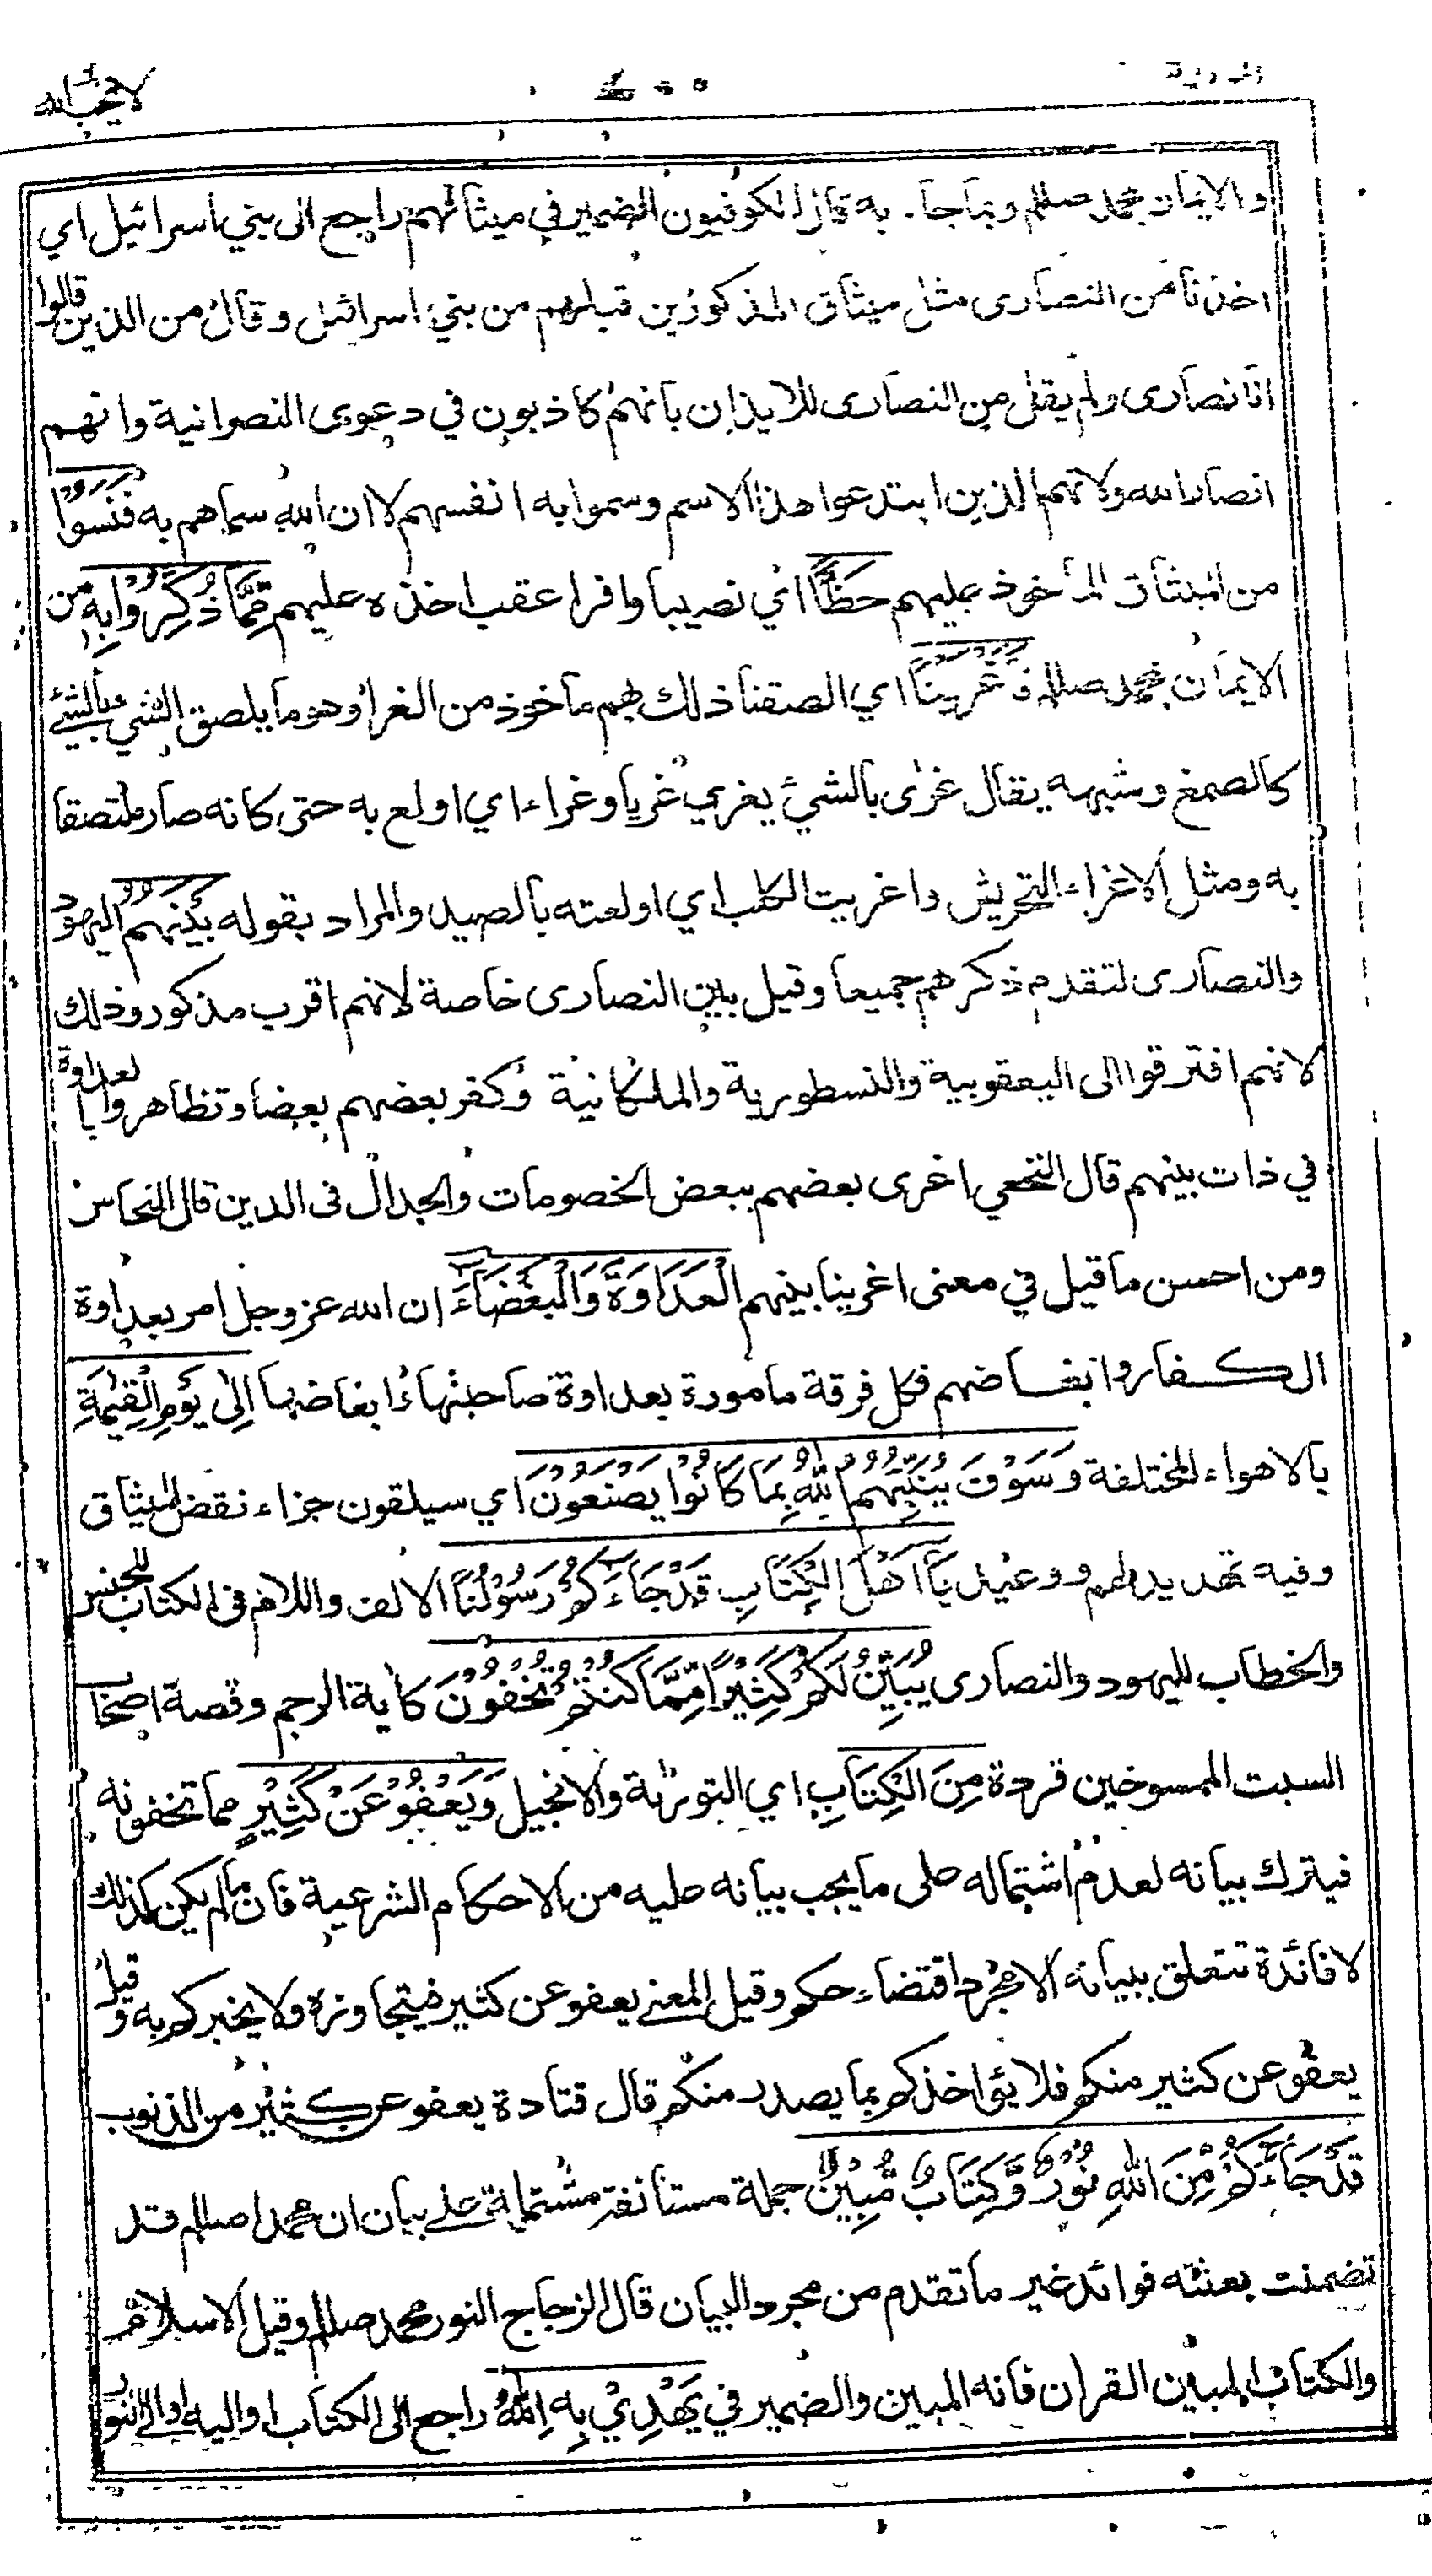 لا يحب الله
والايمان بمحمد صللم وبما جاء به قال الكوفيون الضمير في ميثاقهم راجع الى بني اسرائيل اي
اخذنا من النصارى مثل ميثاق المذكورين قبلهم من بني اسرائيل وقال من الذين قالوا
انا نصارى ولم يقل من النصارى للايذان بانهم كاذبون في دعوى النصرانية وانهم
انصار الله ولانهم الذين ابتدعوا هذا الاسم وسموا به انفسهم لا ان الله سماهم به فَنَسُوْا
من الميثاق الماخوذ عليهم حَظًّا اي نصيبا وافرا عقب اخذه عليهم مِّمَّا ذُكِّرُوْا بِهٖ من
الايمان بمحمد صللم فَاَغْرَيْنَا اي الصقنا ذلك بهم ماخوذ من الغراء وهو ما يلصق الشئ بالشئ
كالصمغ وشبهه يقال غرى بالشئ يغري غريا وغراء اي اولع به حتى كانه صار ملتصقا
به ومثل الاغراء التحريش واغريت الكلب اي اولعته بالصيد والمراد بقوله بَيْنَهُمُ اليهود
والنصارى لتقدم ذكرهم جميعا وقيل بين النصارى خاصة لانهم اقرب مذكور وذلك
لانهم افترقوا الى اليعقوبية والنسطورية والملكانية وكفر بعضهم بعضا وتظاهروا بالعداوة
في ذات بينهم قال النخعي اغرى بعضهم ببعض الخصومات والجدال في الدين قال النحاس
ومن احسن ما قيل في معنى اغرينا بينهم الْعَدَاوَةَ وَالْبَغْضَآءَ ان الله عز وجل امر بعداوة
الكفار وابغاضهم فكل فرقة مامورة بعداوة صاحبتها وابغاضها اِلٰى يَوْمِ الْقِيٰمَةِ
بالاهواء المختلفة وَسَوْفَ يُنَبِّئُهُمُ اللّٰهُ بِمَا كَانُوْا يَصْنَعُوْنَ اي سيلقون جزاء نقض الميثاق
وفيه تهديد لهم ووعيد يَآ اَهْلَ الْكِتَابِ قَدْ جَآءَكُمْ رَسُوْلُنَا الالف واللام في الكتاب للجنس
والخطاب لليهود والنصارى يُبَيِّنُ لَكُمْ كَثِيْرًا مِّمَّا كُنْتُمْ تُخْفُوْنَ كاية الرجم وقصة اصحاب
السبت الممسوخين قردة مِنَ الْكِتَابِ اي التورٰىة والانجيل وَيَعْفُوْ عَنْ كَثِيْرٍ مما تخفونه
فيترك بيانه لعدم اشتماله على ما يجب بيانه عليه من الاحكام الشرعية فان ما لم يكن كذلك
لا فائدة تتعلق ببيانه الا مجرد اقتضاءحكم وقيل المعنى يعفو عن كثير فيتجاوزه ولا يخبركم به وقيل
يعفو عن كثير منكم فلا يؤاخذكم بما يصدر منكم قال قتادة يعفو عن كثير من الذنوب
قَدْ جَآءَكُمْ مِّنَ اللّٰهِ نُوْرٌ وَّكِتَابٌ مُّبِيْنٌ جملة مستانفة مشتملة على بيان ان محمدا صللم قد
تضمنت بعثته فوائد غير ما تقدم من مجرد البيان قال الزجاج النور محمد صللم وقيل الاسلام
والكتاب المبين القران فانه المبين والضمير في يَهْدِيْ بِهِ اللّٰهُ راجع الى الكتاب او اليه والى النور